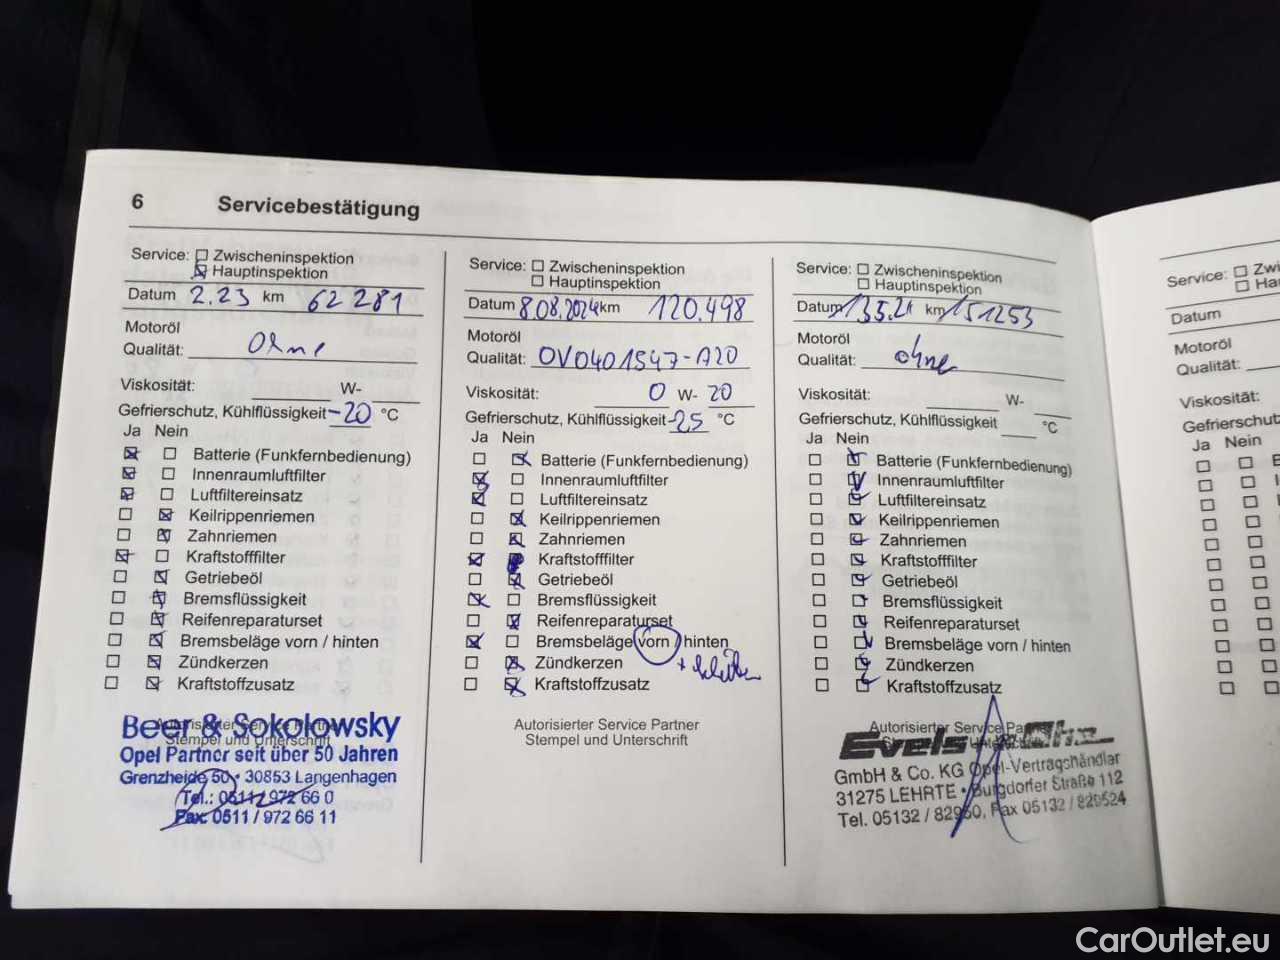 6 Servicebestätigung
Service: Zwischeninspektion
Hauptinspektion
Datum 2.23 km 62 281
Motoröl
Qualität: Ohne
Viskosität: W-
Gefrierschutz, Kühlflüssigkeit -20 °C
Ja Nein
Batterie (Funkfernbedienung)
Innenraumluftfilter
Luftfiltereinsatz
Keilrippenriemen
Zahnriemen
Kraftstofffilter
Getriebeöl
Bremsflüssigkeit
Reifenreparaturset
Bremsbeläge vorn / hinten
Zündkerzen
Kraftstoffzusatz
Autorisierter Service Partner
Stempel und Unterschrift
Beer & Sokolowsky
Opel Partner seit über 50 Jahren
Grenzheide 50 · 30853 Langenhagen
Tel.: 0511 / 972 66 0
Fax: 0511 / 972 66 11
Service: Zwischeninspektion
Hauptinspektion
Datum 8.08.2024 km 120.498
Motoröl
Qualität: OV0401547-A20
Viskosität: 0 W- 20
Gefrierschutz, Kühlflüssigkeit -25 °C
Ja Nein
Batterie (Funkfernbedienung)
Innenraumluftfilter
Luftfiltereinsatz
Keilrippenriemen
Zahnriemen
Kraftstofffilter
Getriebeöl
Bremsflüssigkeit
Reifenreparaturset
Bremsbeläge vorn / hinten
Zündkerzen
Kraftstoffzusatz
Autorisierter Service Partner
Stempel und Unterschrift
Service: Zwischeninspektion
Hauptinspektion
Datum km 151253
Motoröl
Qualität: ohne
Viskosität: W-
Gefrierschutz, Kühlflüssigkeit °C
Ja Nein
Batterie (Funkfernbedienung)
Innenraumluftfilter
Luftfiltereinsatz
Keilrippenriemen
Zahnriemen
Kraftstofffilter
Getriebeöl
Bremsflüssigkeit
Reifenreparaturset
Bremsbeläge vorn / hinten
Zündkerzen
Kraftstoffzusatz
Autorisierter Service Pa
Evels
GmbH & Co. KG Opel-Vertragshändler
31275 LEHRTE • Burgdorfer Straße 112
Tel. 05132 / 82960, Fax 05132 / 829524
Service: Zwi
Ha
Datum
Motoröl
Qualität:
Viskosität:
Gefrierschutz
Ja Nein
CarOutlet.eu